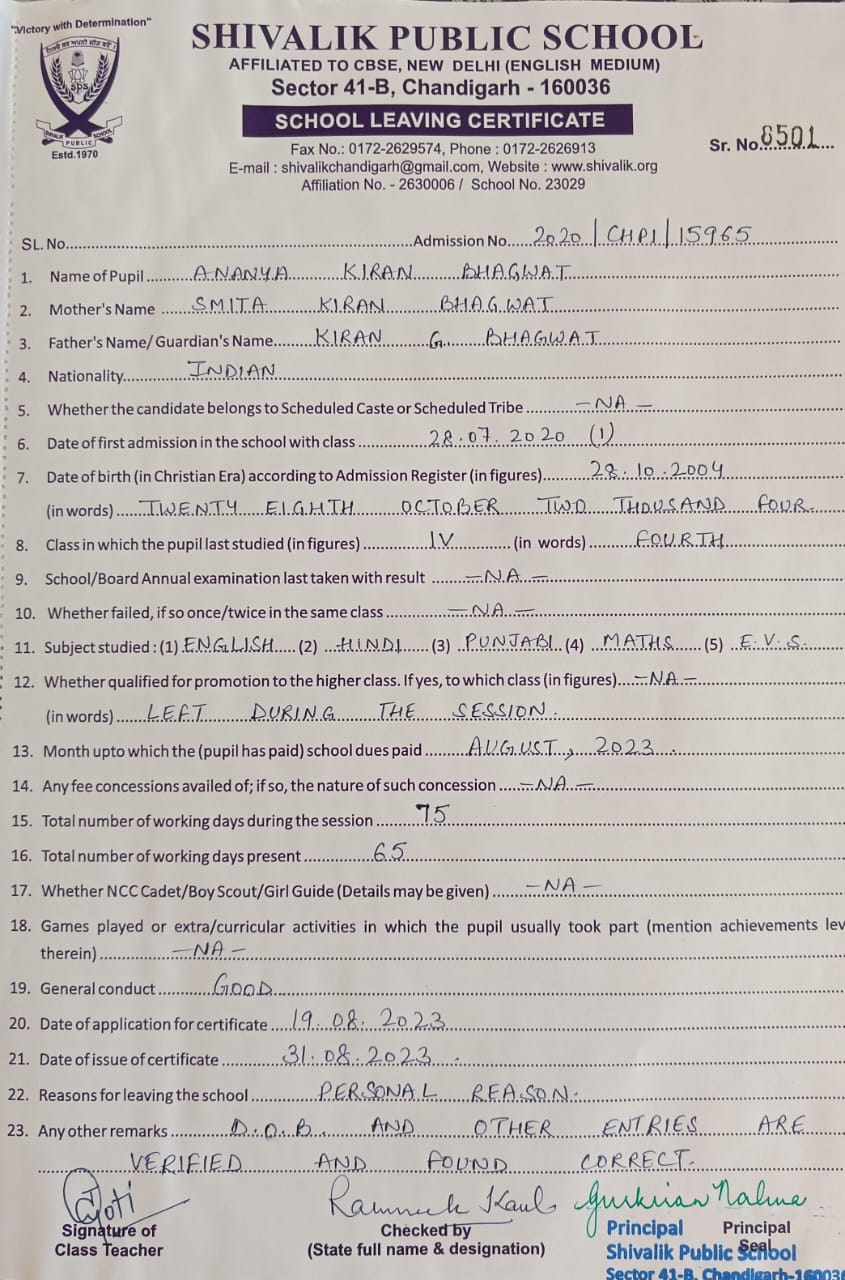 "Victory with Determination"
SHIVALIK PUBLIC SCHOOL
AFFILIATED TO CBSE, NEW DELHI (ENGLISH MEDIUM)
Sector 41-B, Chandigarh - 160036
SCHOOL LEAVING CERTIFICATE
SPS
SHIVALIK PUBLIC SCHOOL
Estd.1970
Fax No.: 0172-2629574, Phone : 0172-2626913
E-mail : shivalikchandigarh@gmail.com, Website : www.shivalik.org
Affiliation No. - 2630006 / School No. 23029
Sr. No. 8501
SL. No. Admission No. 2020/CHPI/15965
1. Name of Pupil ANANYA KIRAN BHAGWAT
2. Mother's Name SMITA KIRAN BHAGWAT
3. Father's Name/ Guardian's Name KIRAN G. BHAGWAT
4. Nationality INDIAN
5. Whether the candidate belongs to Scheduled Caste or Scheduled Tribe -NA-
6. Date of first admission in the school with class 28.07.2020 (1)
7. Date of birth (in Christian Era) according to Admission Register (in figures) 28.10.2004
(in words) TWENTY EIGHTH OCTOBER TWO THOUSAND FOUR.
8. Class in which the pupil last studied (in figures) IV (in words) FOURTH
9. School/Board Annual examination last taken with result -NA-
10. Whether failed, if so once/twice in the same class -NA-
11. Subject studied : (1) ENGLISH (2) HINDI (3) PUNJABI (4) MATHS (5) E.V.S.
12. Whether qualified for promotion to the higher class. If yes, to which class (in figures) -NA-
(in words) LEFT DURING THE SESSION.
13. Month upto which the (pupil has paid) school dues paid AUGUST, 2023.
14. Any fee concessions availed of; if so, the nature of such concession -NA-
15. Total number of working days during the session 75
16. Total number of working days present 65
17. Whether NCC Cadet/Boy Scout/Girl Guide (Details may be given) -NA-
18. Games played or extra/curricular activities in which the pupil usually took part (mention achievements lev
therein) -NA-
19. General conduct GOOD
20. Date of application for certificate 19.08.2023
21. Date of issue of certificate 31.08.2023.
22. Reasons for leaving the school PERSONAL REASON.
23. Any other remarks D.O.B. AND OTHER ENTRIES ARE
VERIFIED AND FOUND CORRECT.
Jyoti Ramneek Kaul
Signature of Class Teacher
Checked by
(State full name & designation)
Principal
Seal
Principal
Shivalik Public School
Sector 41-B, Chandigarh-160036